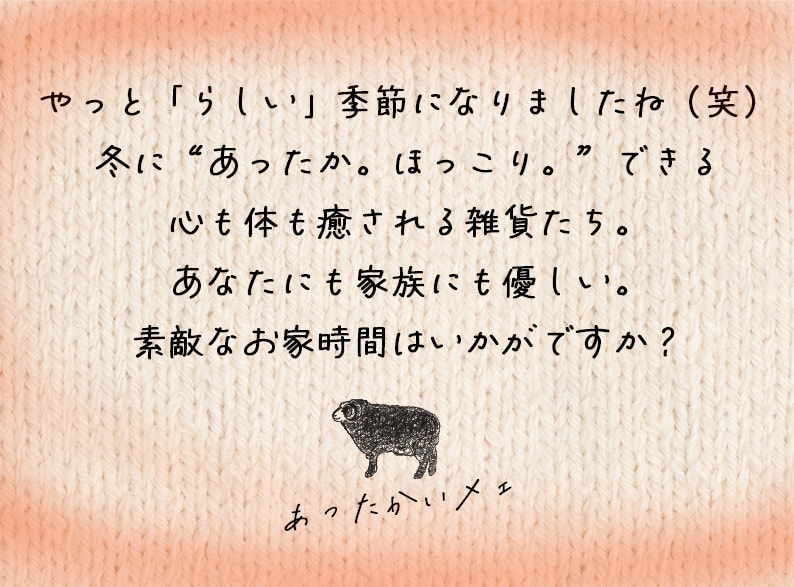 やっと「らしい」季節になりましたね（笑）
冬に“あったか。ほっこり。”できる
心も体も癒される雑貨たち。
あなたにも家族にも優しい。
素敵なお家時間はいかがですか？
あったかいメェ